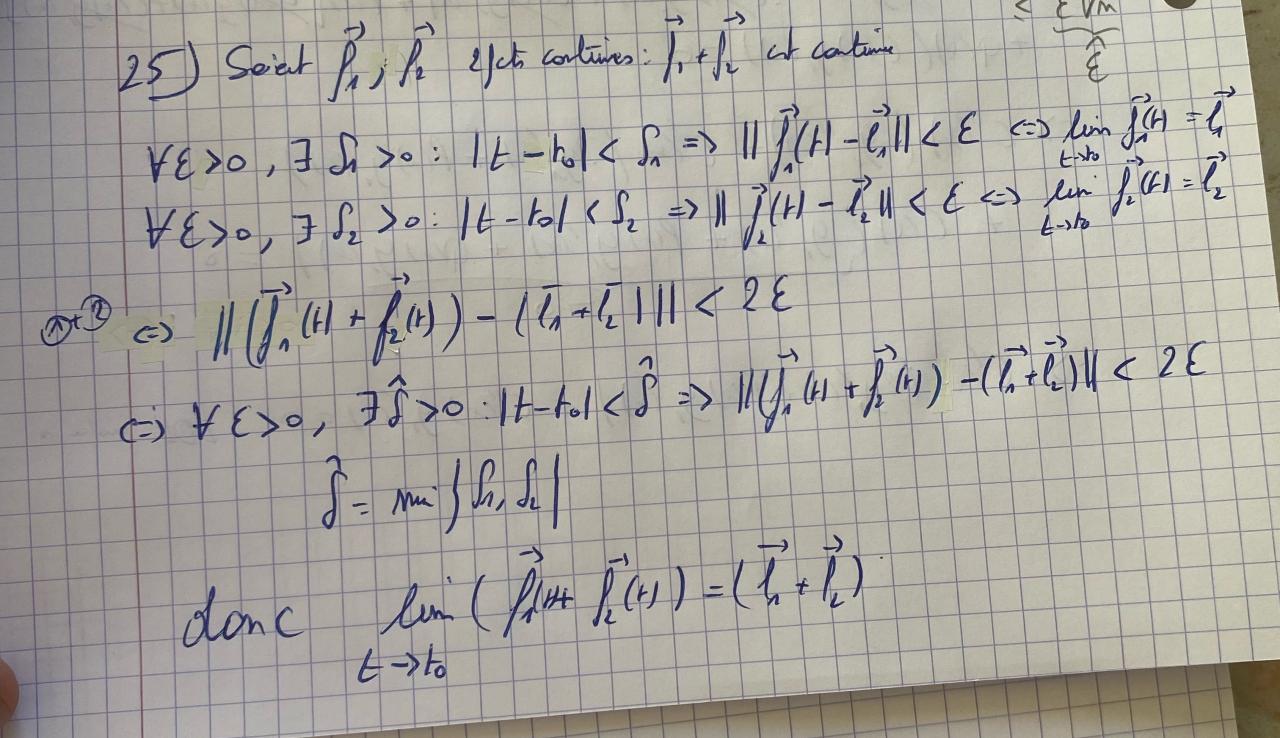 ≤ ε√n
ε̂
25) Soient f⃗₁, f⃗₂ 2 fcts continues : f⃗₁ + f⃗₂ est continue
∀ε>0, ∃ δ₁ >0 : |t-t₀| < δ₁ => || f⃗₁(t) - l⃗₁ || < ε <=> lim t->t₀ f⃗₁(t) = l⃗₁
∀ε>0, ∃ δ₂ >0 : |t-t₀| < δ₂ => || f⃗₂(t) - l⃗₂ || < ε <=> lim t->t₀ f⃗₂(t) = l⃗₂
①+② <=> || (f⃗₁(t) + f⃗₂(t)) - (l⃗₁ + l⃗₂) || < 2ε
<=> ∀ε>0, ∃ δ̂ >0 : |t-t₀| < δ̂ => || (f⃗₁(t) + f⃗₂(t)) - (l⃗₁ + l⃗₂) || < 2ε
δ̂ = min { δ₁, δ₂ }
donc lim t->t₀ ( f⃗₁(t) + f⃗₂(t) ) = ( l⃗₁ + l⃗₂ )